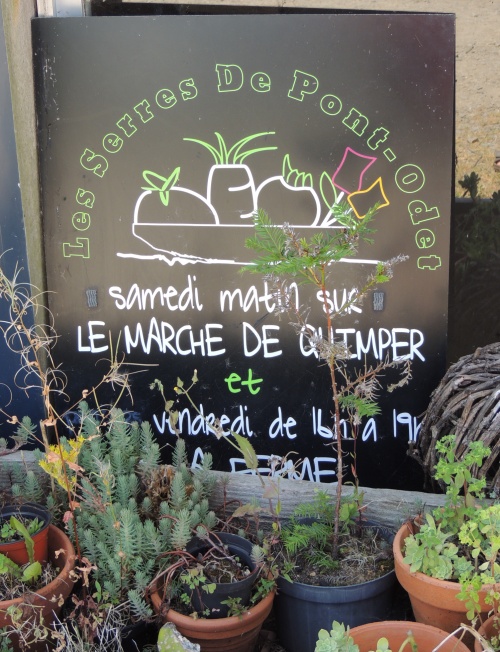 Les Serres De Pont-Odet
samedi matin sur
LE MARCHE DE QUIMPER
et
vendredi de 16h à 19h
FERME